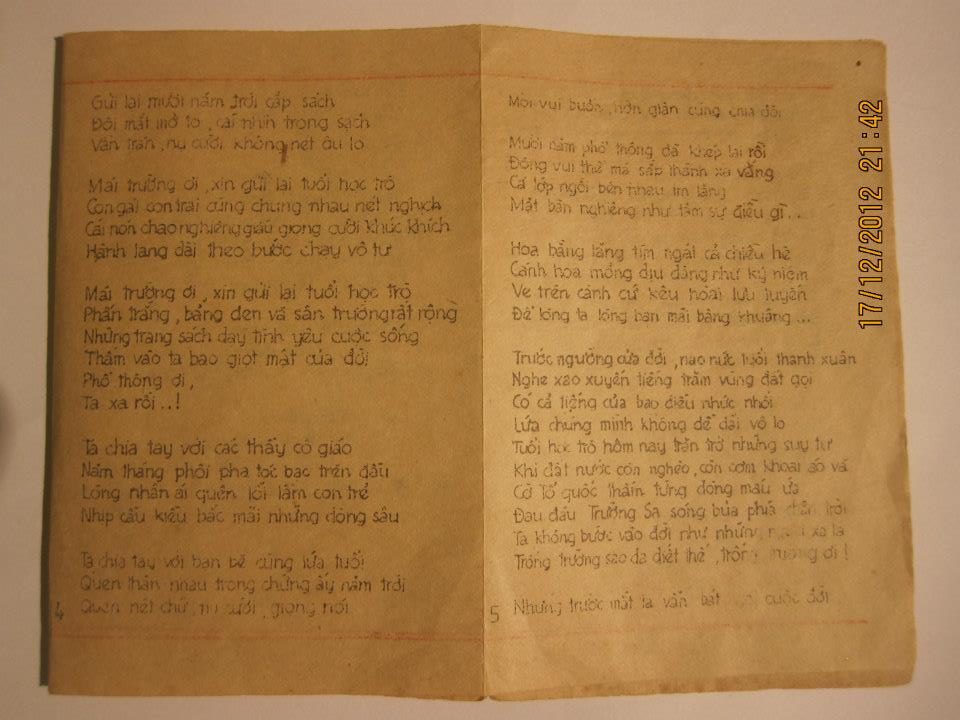 Gửi lại mười năm trời cắp sách
Đôi mắt mở to, cái nhìn trong sạch
Vầng trán, nụ cười không nét âu lo
Mái trường ơi, xin gửi lại tuổi học trò
Con gái con trai cùng chung nhau nét nghịch
Cái nón chao nghiêng giấu giọng cười khúc khích
Hành lang dài theo bước chạy vô tư
Mái trường ơi, xin gửi lại tuổi học trò
Phấn trắng, bảng đen và sân trường rất rộng
Những trang sách dạy tình yêu cuộc sống
Thấm vào ta bao giọt mật của đời
Phổ thông ơi,
Ta xa rồi..!
Ta chia tay với các thầy cô giáo
Năm tháng phôi pha tóc bạc trên đầu
Lòng nhân ái quên lỗi lầm con trẻ
Nhịp cầu kiều bắc mãi những dòng sâu
Ta chia tay với bạn bè cùng lứa tuổi
Quen thân nhau trong chừng ấy năm trời
Quen nét chữ, nụ cười, giọng nói
4
Mỗi vui buồn, hờn giận cũng chia đôi
Mười năm phổ thông đã khép lại rồi
Đông vui thế mà sắp thành xa vắng
Cả lớp ngồi bên nhau im lặng
Mặt bàn nghiêng như tâm sự điều gì...
Hoa bằng lăng tím ngát cả chiều hè
Cánh hoa mỏng dịu dàng như kỷ niệm
Ve trên cành cứ kêu hoài lưu luyến
Để lòng ta lòng bạn mãi bâng khuâng...
Trước ngưỡng cửa đời, náo nức tuổi thanh xuân
Nghe xao xuyến tiếng trăm vùng đất gọi
Có cả tiếng của bao điều nhức nhối
Lứa chúng mình không dễ dãi vô lo
Tuổi học trò hôm nay trăn trở những suy tư
Khi đất nước còn nghèo, còn cơm khoai áo vá
Cờ Tổ quốc thấm từng dòng máu ứa
Đau đáu Trường Sa sóng bủa phía chân trời
Ta không bước vào đời như những người xa lạ
Trống trường sao da diết thế, trống trường ơi!
Nhưng trước mắt ta vẫn bát cuộc đời
5
17/12/2012 21:42